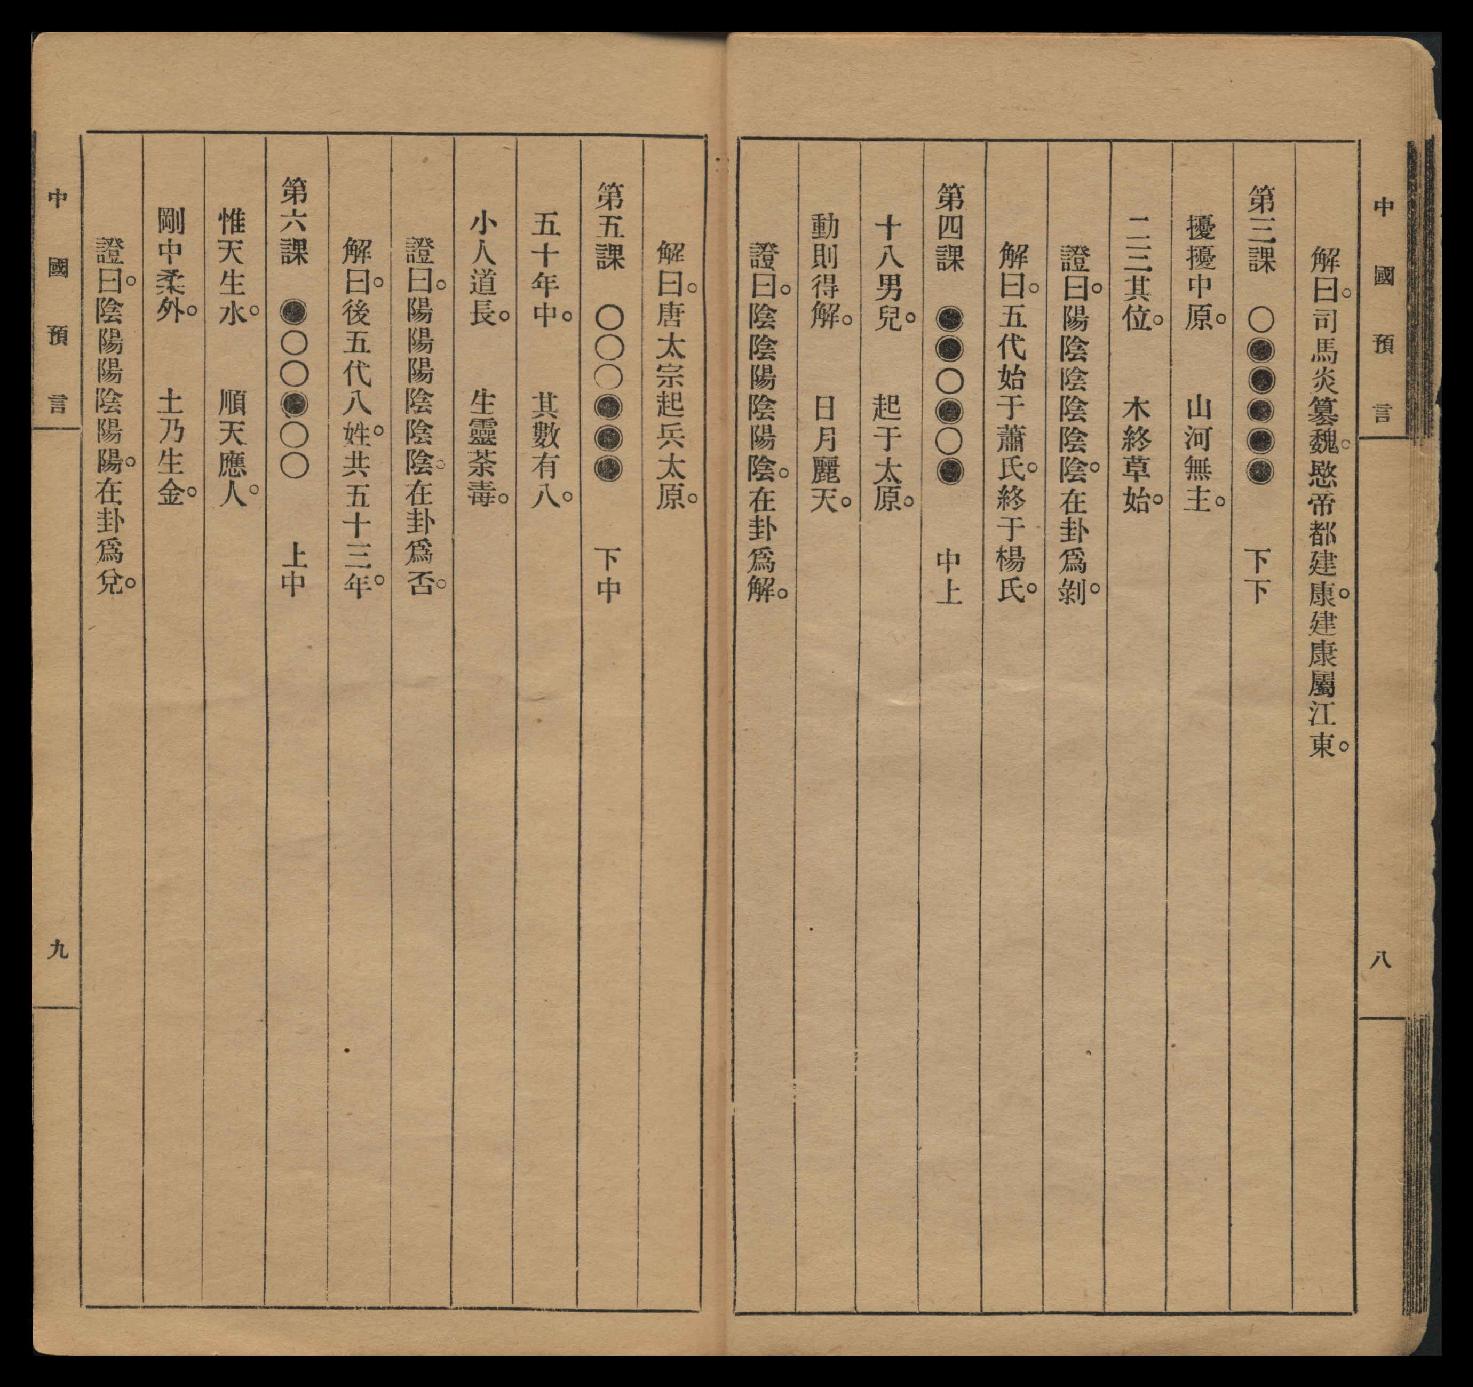 中國預言
八
解曰。司馬炎篡魏。愍帝都建康。建康屬江東。
第三課　○●●●●●　下下
擾擾中原。　山河無主。
二三其位。　木終草始。
證曰。陽陰陰陰陰陰。在卦爲剝。
解曰。五代始于蕭氏。終于楊氏。
第四課　●●○●○●　中上
十八男兒。　起于太原。
動則得解。　日月麗天。
證曰。陰陰陽陰陽陰。在卦爲解。
解曰。唐太宗起兵太原。
第五課　○○○●●●　下中
五十年中。　其數有八。
小人道長。　生靈荼毒。
證曰。陽陽陽陰陰陰。在卦爲否。
解曰。後五代八姓。共五十三年。
第六課　●○○●○○　上中
惟天生水。　順天應人。
剛中柔外。　土乃生金。
證曰。陰陽陽陰陽陽。在卦爲兌。
中國預言
九